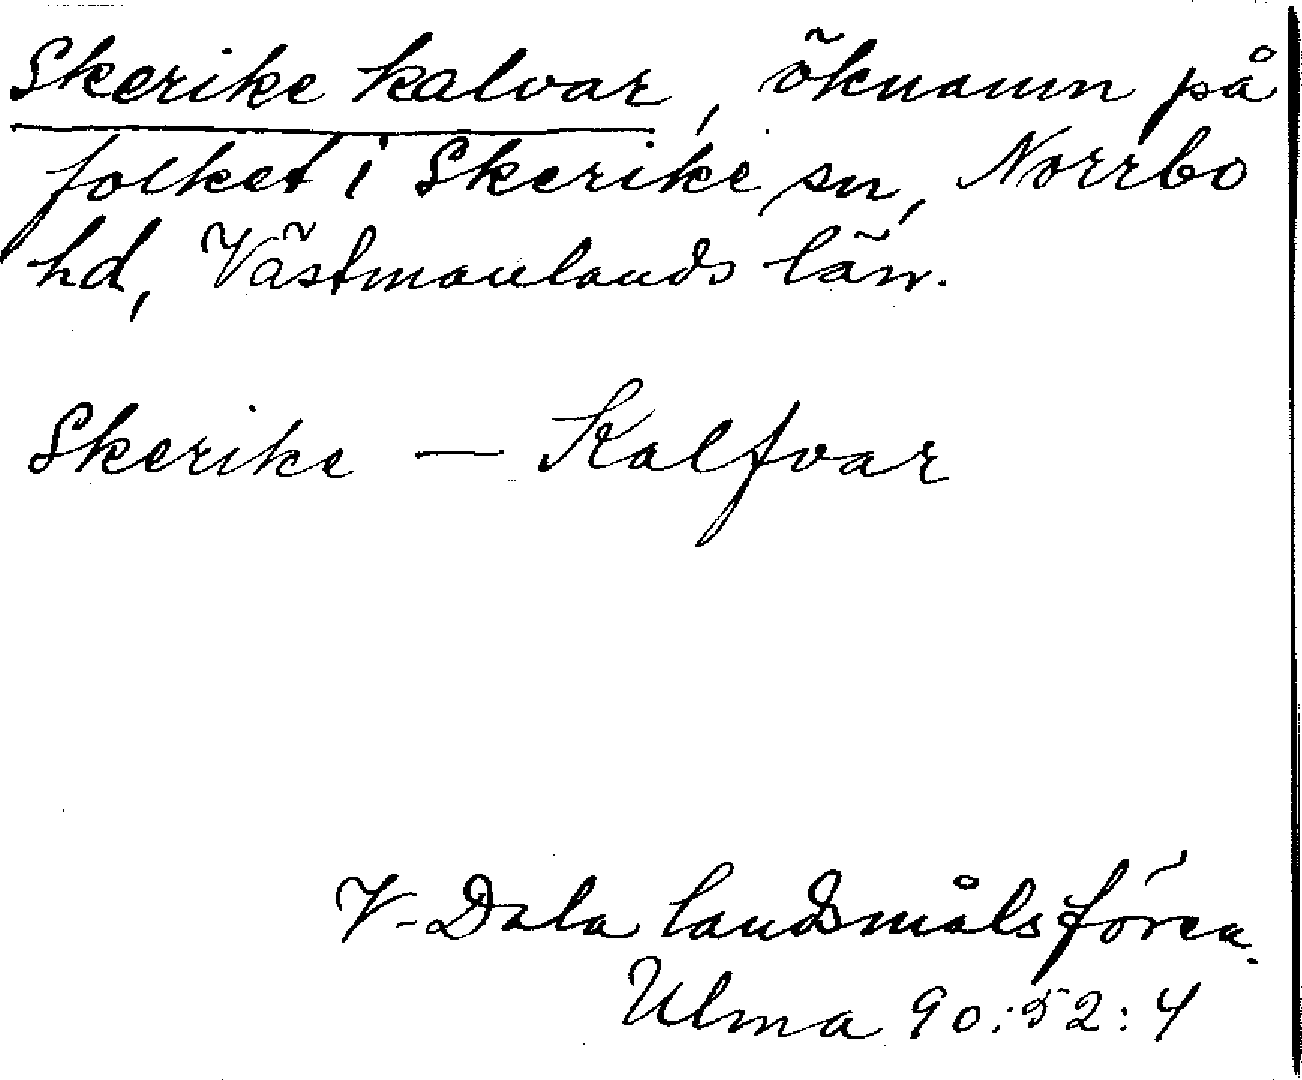 Skerike kalvar, öknamn på
folket i Skerike sn, Norrbo
hd, Västmanlands län.
Skerike — Kalfvar
V-Dala landsmålsfören.
Ulma 90:52:4